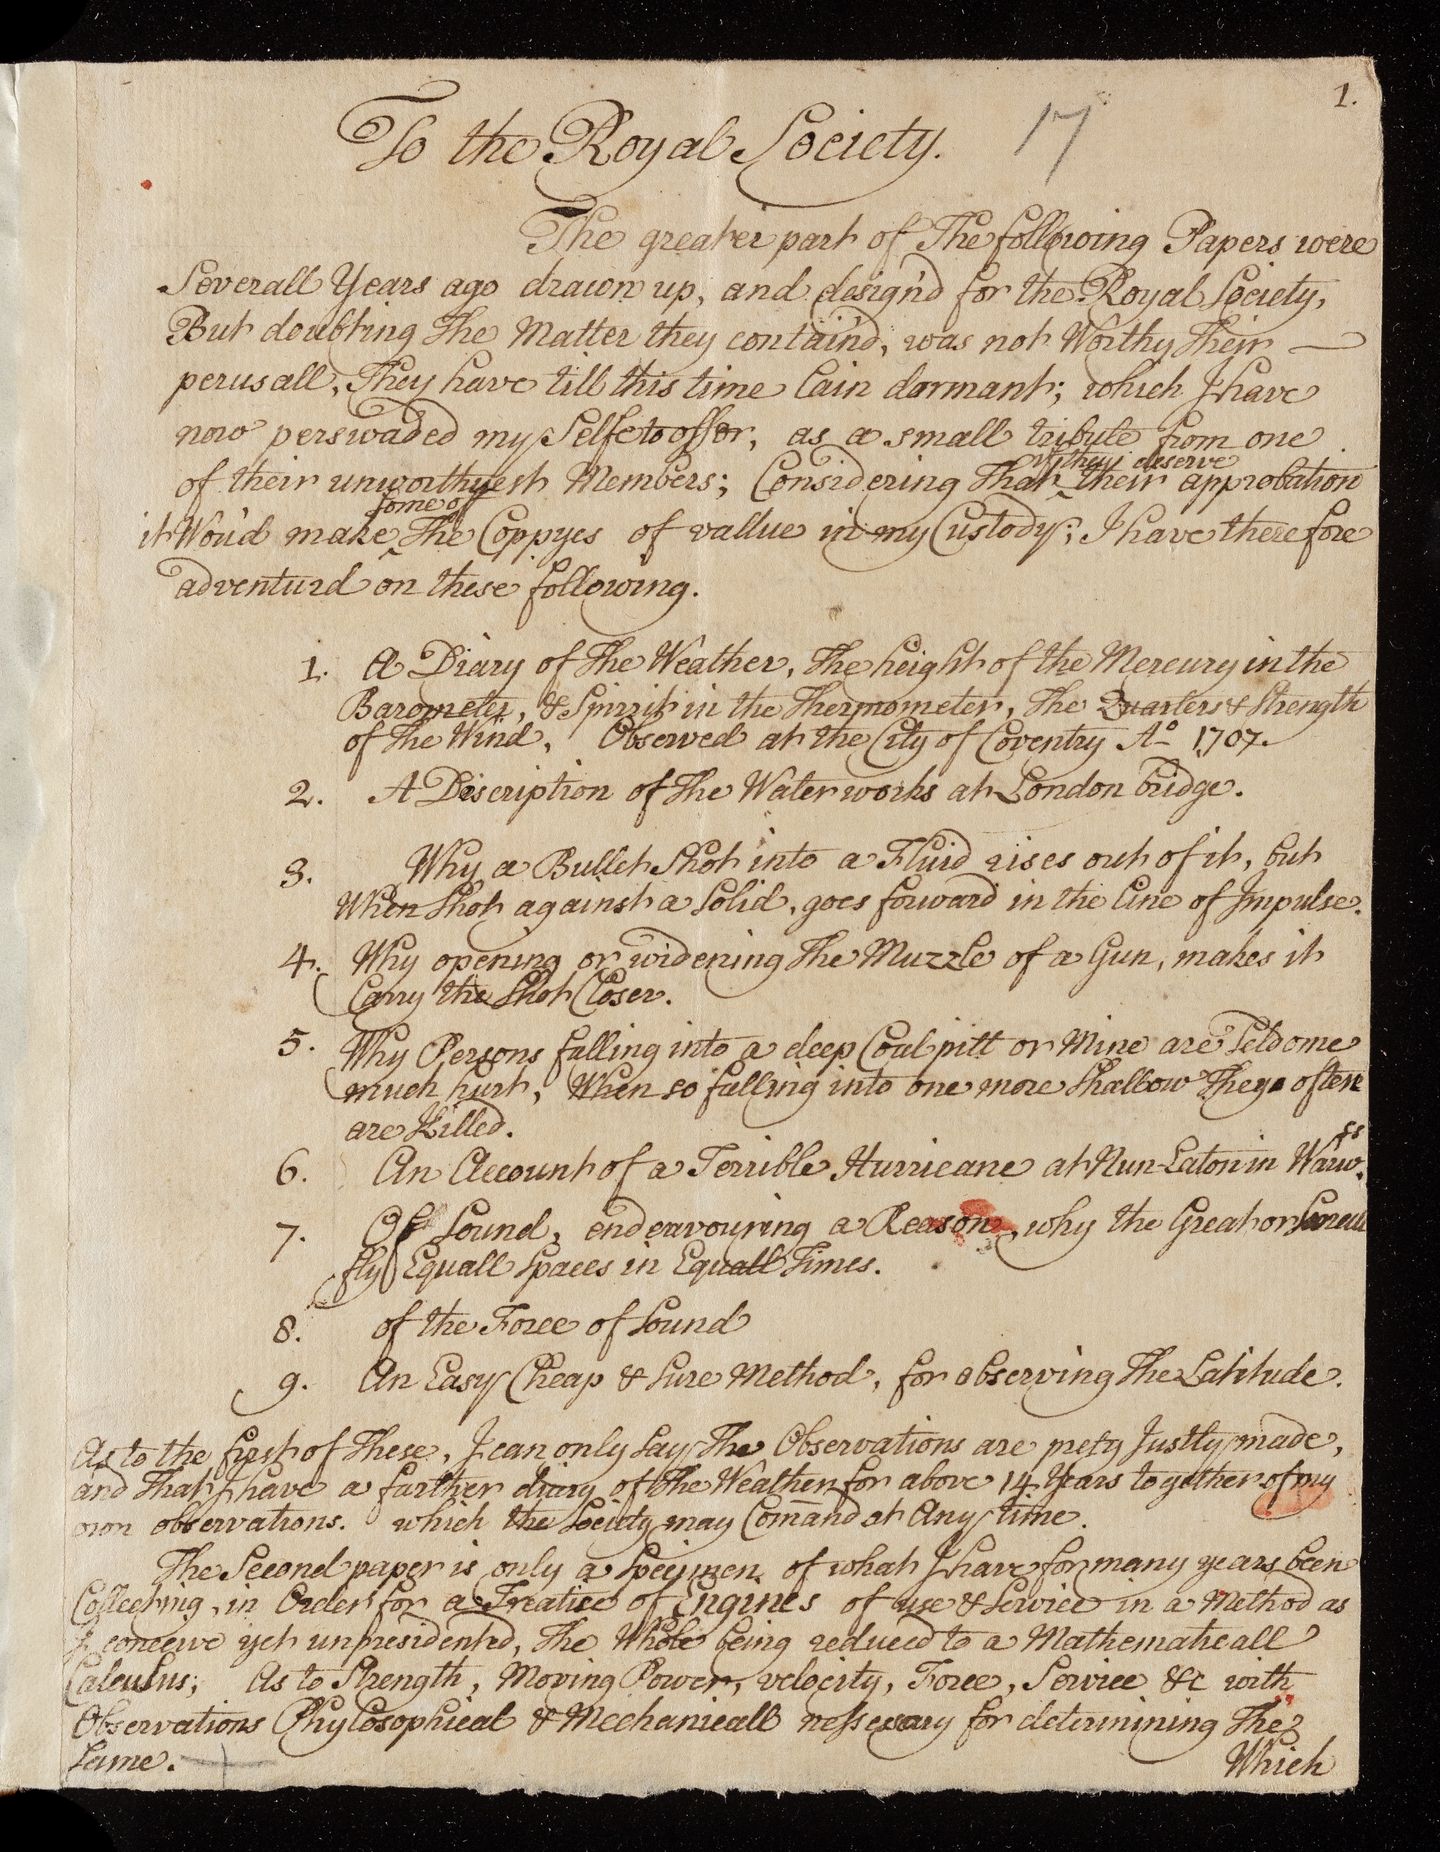 1.
To the Royal Society. 17
The greater part of The following Papers were
Severall Years ago drawn up, and design'd for the Royal Society,
But doubting The Matter they contain'd, was not Worthy Their
perusall, They have till this time lain dormant; which I have
now perswaded my Selfe to offer, as a small tribute from one
of their unworthyest Members; Considering That if they deserve their approbation
it Wou'd make some of The Coppyes of vallue in my Custody; I have therefore
adventurd on these following.
1. A Diary of The Weather, The height of the Mercury in the
Barometer, & Spirrit in the Thermometer, The Quarters & Strength
of The Wind, Observed at the City of Coventry Ao 1707.
2. A Discription of The Waterworks at London bridge.
3. Why a Bullet Shot into a Fluid rises out of it, but
When Shot against a Solid, goes forward in the Line of Impulse.
4. Why opening or widening The Muzzle of a Gun, makes it
Carry the Shot Closer.
5. Why Persons falling into a deep Coal pitt or Mine are Seldome
much hurt, When so falling into one more Shallow They often
are Killed.
6. An Account of a Terrible Hurricane at Nun-Eaton in Warw.
7. Of Sound, endeavouring a Reason, why the Great or Small
fly Equall Spaces in Equall Times.
8. of the Force of Sound
9. An Easy Cheap & Sure Method, for observing The Latitude.
As to the first of These, I can only Say The Observations are prety Justly made,
and That I have a farther diary of The Weather for above 14 Years together of my
own observations. which the Society may Comand at Any time.
The Second paper is only a Specimen of what I have for many years been
Collecting, in Order for a Treatise of Engines of use & Service in a Method as
I conceive yet unpresidented, The Whole being reduced to a Mathematicall
Calculus; As to Strength, Moving Power, velocity, Force, Service &c with
Observations Phylosophical & Mechanicall nessessary for determining The
Same.
Which